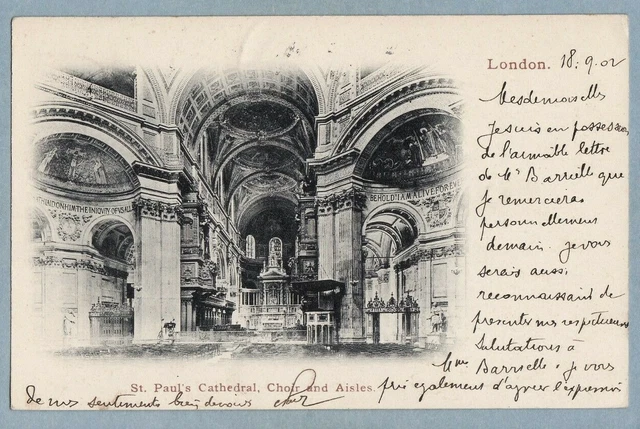 London. 18.9.02
Mesdemoiselles
Je suis en possession
de l'aimable lettre
de Mr Barrielle que
je remercierai
personnellement
demain. Je vous
serais aussi
reconnaissant de
présenter mes respectueuses
salutations à
Mme Barrielle & je vous
prie également d'agréer l'expression
de mes sentiments bien dévoués
LAID ON HIM THE INIQUITY OF US ALL
BEHOLD I AM ALIVE FOREVER
St. Paul's Cathedral, Choir and Aisles.